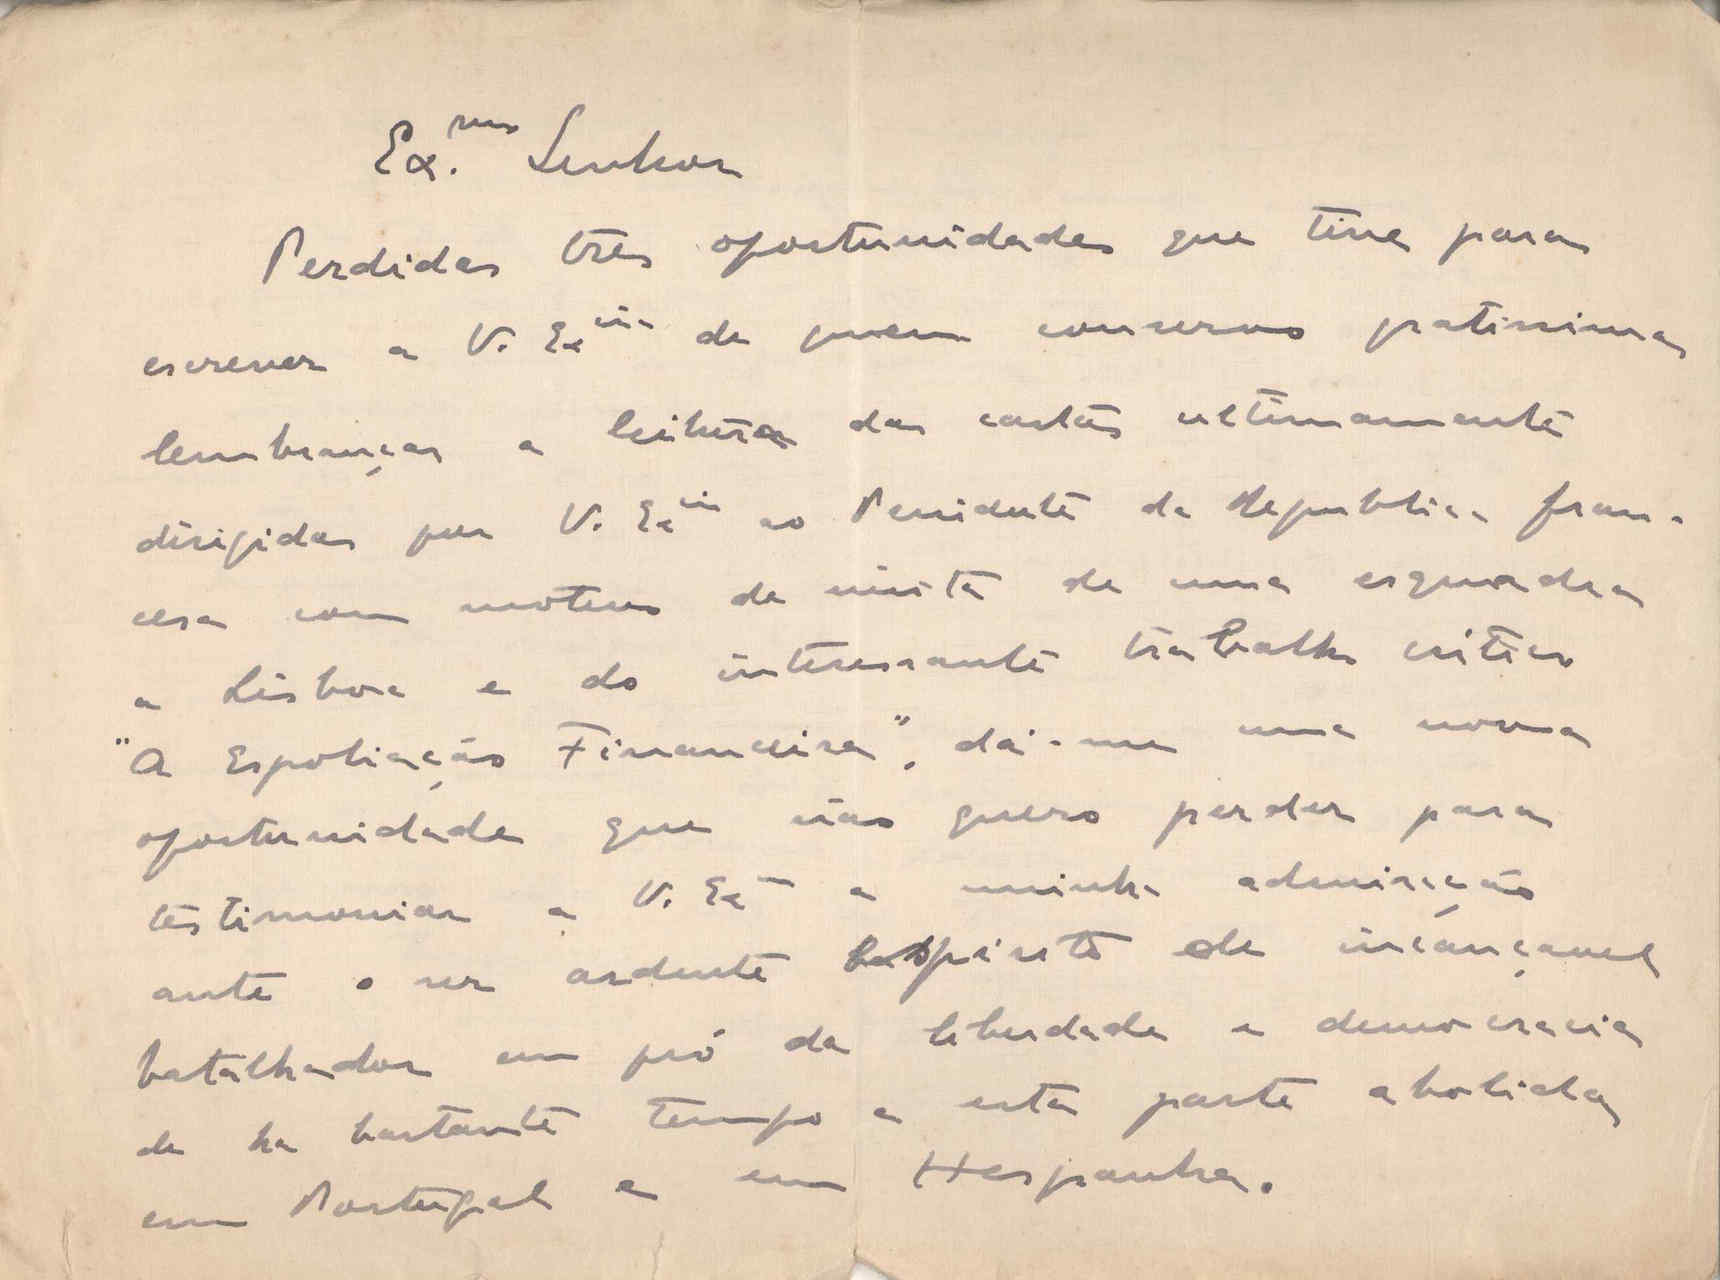 Ex.mo Senhor
Perdidas tres oportunidades que tive para
escrever a V. Excia de quem conservo gratissimas
lembranças a leitura das cartas ultimamente
dirigidas por V. Excia ao Presidente da Republica fran-
cesa com motivo da visita de uma esquadra
a Lisboa e do interessante trabalho critico
"A Espoliação Financeira", dá-me uma nova
oportunidade que não quero perder para
testimoniar a V. Ex a minha admiração
ante o seu ardente espirito de incançavel
batalhador em pró da liberdade e democracia
de ha bastante tempo a esta parte abolidas
em Portugal e em Hespanha.